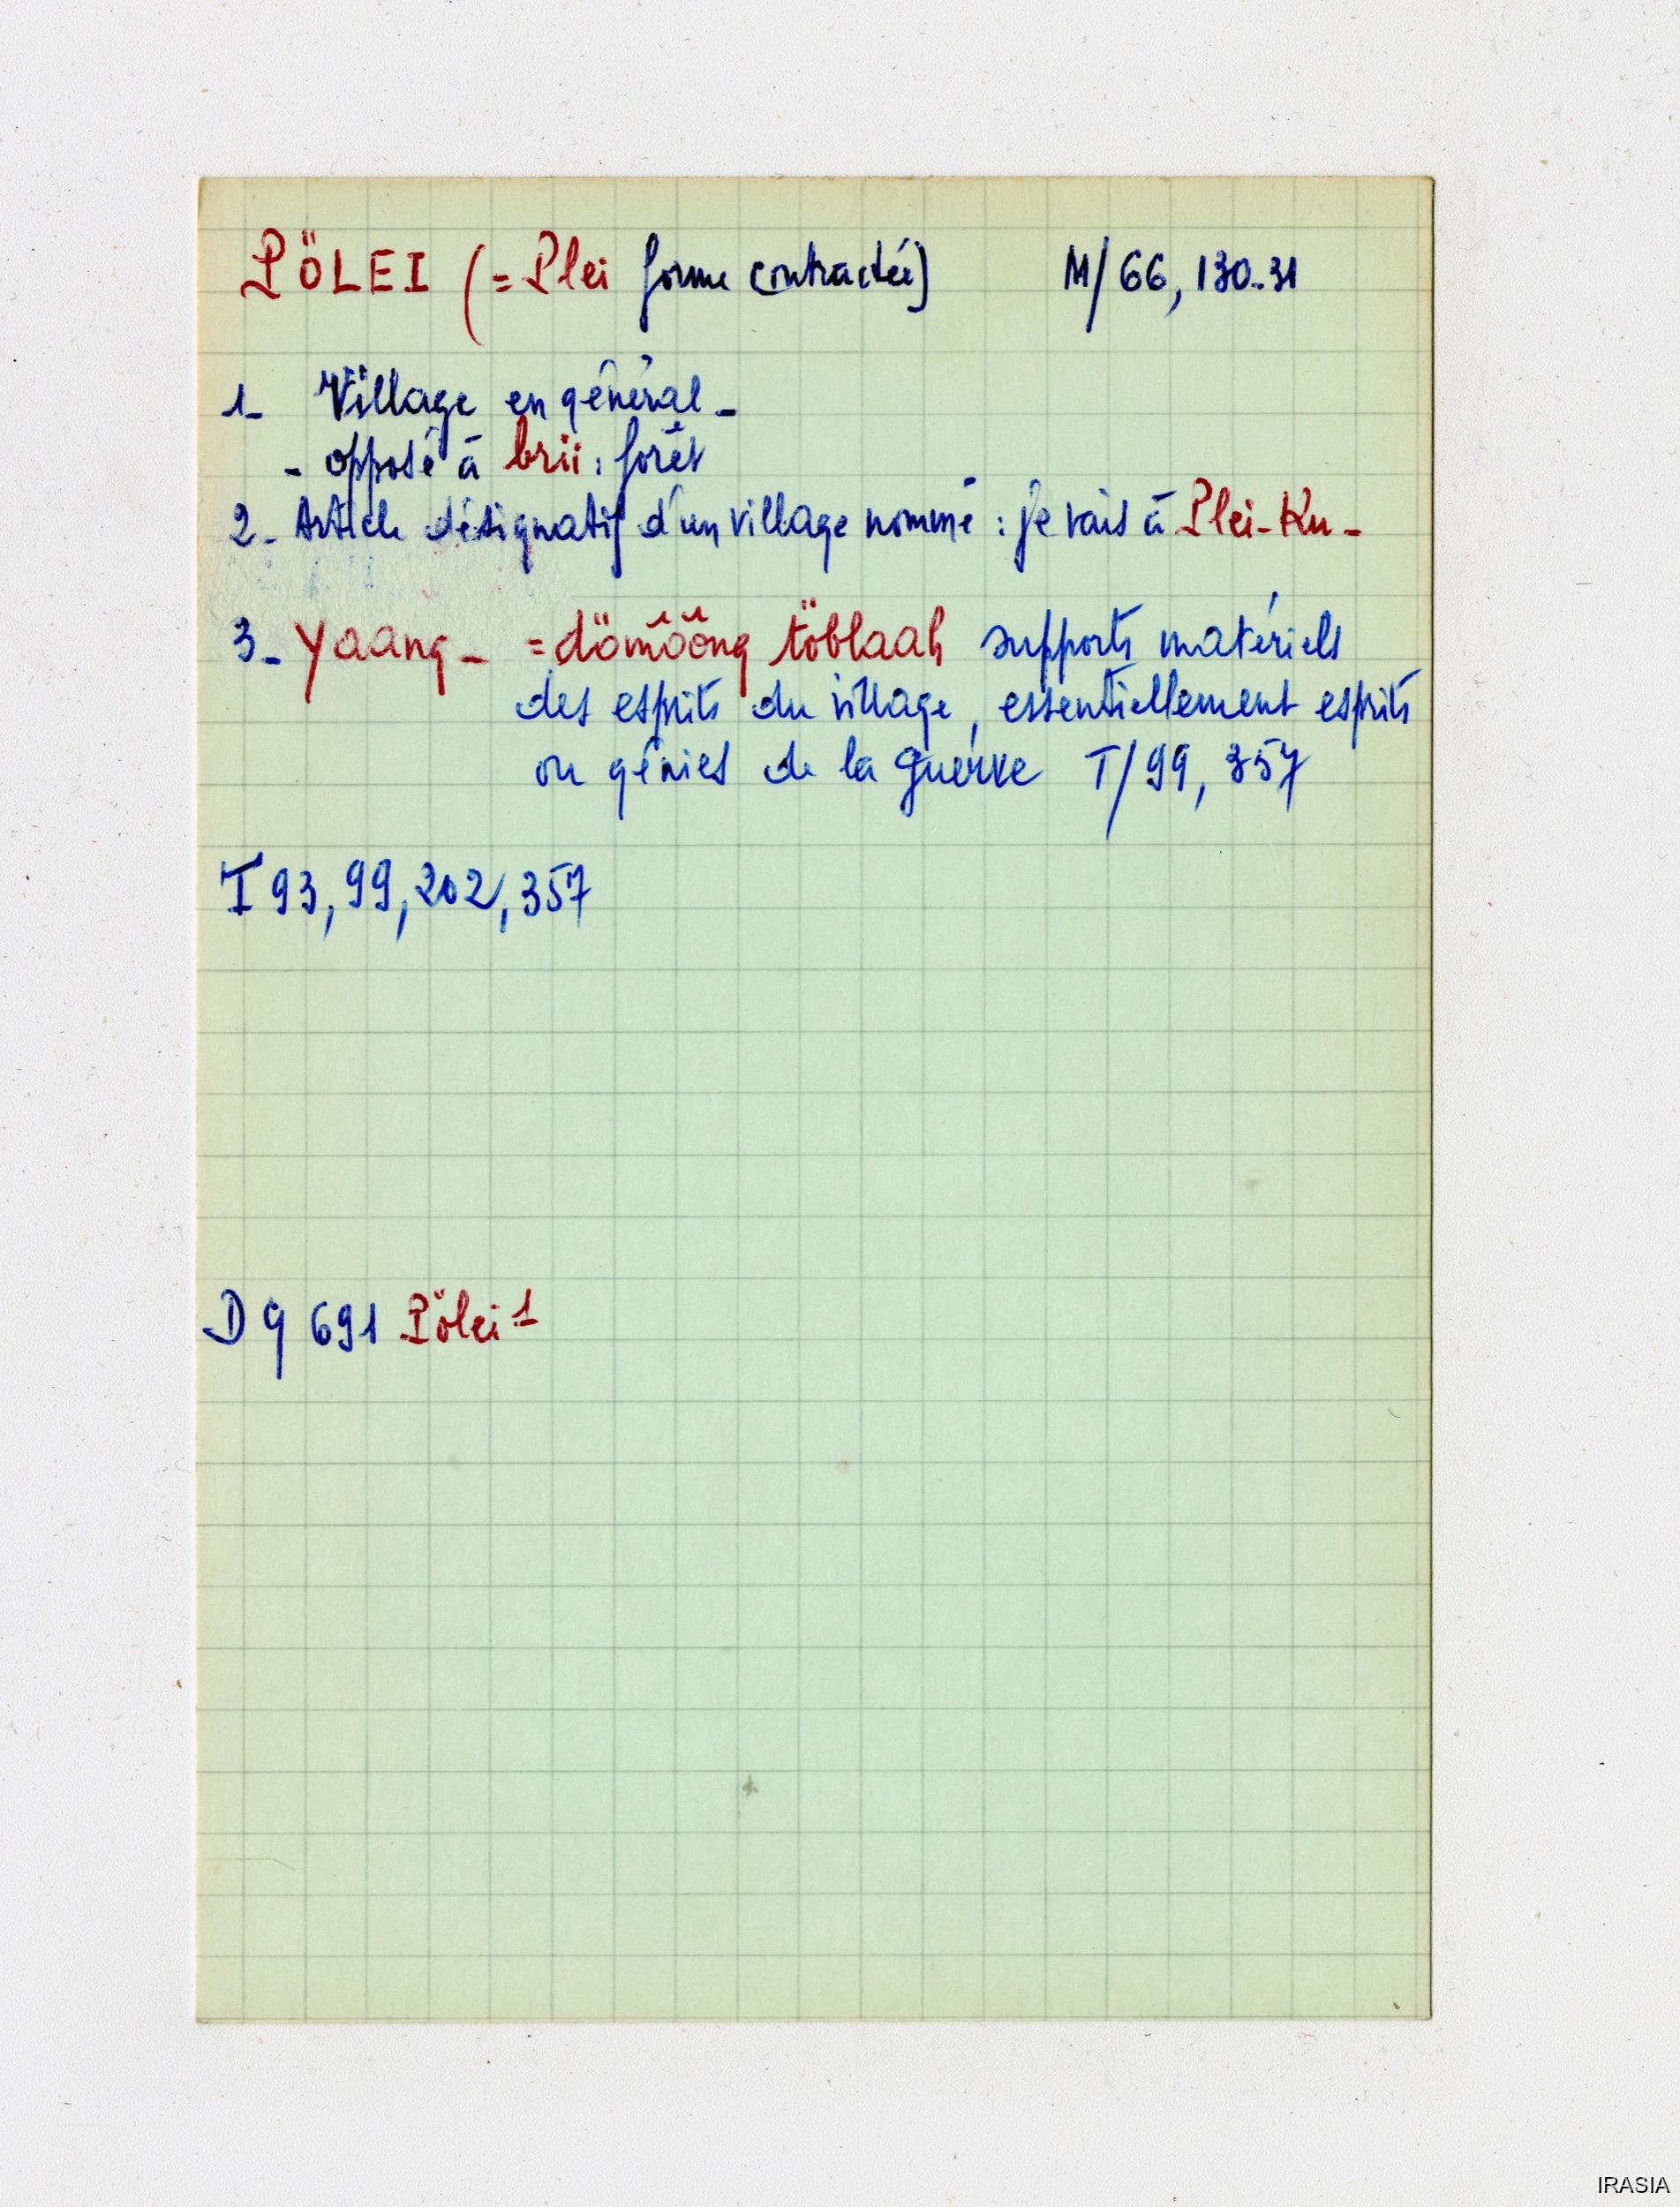 PÖLEI (= Plei forme contractée) M/66, 130-31
1- Village en général -
- opposé à brii : forêt
2- Article désignatif d'un village nommé : je vais à Plei-Ku -
3- Yaang - = dömôông töblaah supports matériels
des esprits du village, essentiellement esprits
ou génies de la guerre T/99, 357
T 93, 99, 202, 357
D 9 691 Pölei 1
IRASIA